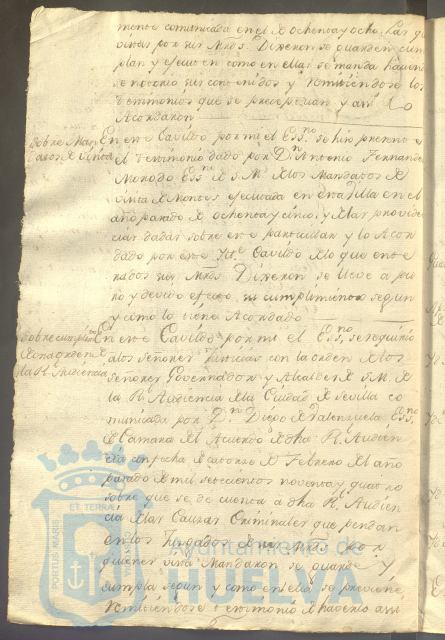 mente comunicada en el de ochenta y ocho. Las qe
oidas por sus Mrds. Dixeron se guarden cum
plan y executen como en ellas se manda haciend
se notorio sus contenidos y remitiendose los
testimonios que se preceptuan y asi lo
Acordaron
Sobre Man
datos de visita
En este Cavildo por mi el Essno. se hizo presente
el testimonio dado por Dn. Antonio Fernande
Essno. de S. M. de los Mandatos de
visita de Montes executada en esta Villa en el
año pasado de ochenta y cinco, y de las provide
cias dadas sobre este particular y lo Acor
dado por este Cavildo de lo que ente
rados sus Mrds. Dixeron se lleve a pu
ro y devido efecto su cumplimiento segun
y como lo tiene Acordado
Sobre cumplimto
de una orden de
la Rl. Audiencia
En este Cavildo por mi el Essno. se requirio
a los señores Justicias con la orden de los
señores Governador y Alcaldes de S. M. de
la Rl. Audiencia de la Ciudad de Sevilla co
municada por Dn. Diego de Valenzuela Essno.
de Camara del Acuerdo de dha Rl. Audien
cia con fecha de catorze de Febrero del año
pasado de mil setecientos noventa y quatro
sobre que se de cuenta a dha Rl. Audien
cia de las Causas Criminales que pendan
en los Juzgados de sus Mrds. por
quienes vista Mandaron se guarde y
cumpla segun y como en ella se previene
remitiendose testimonio de haverlo asi
PORTUS MARIS
ET TERRA
Ayuntamiento de
HUELVA